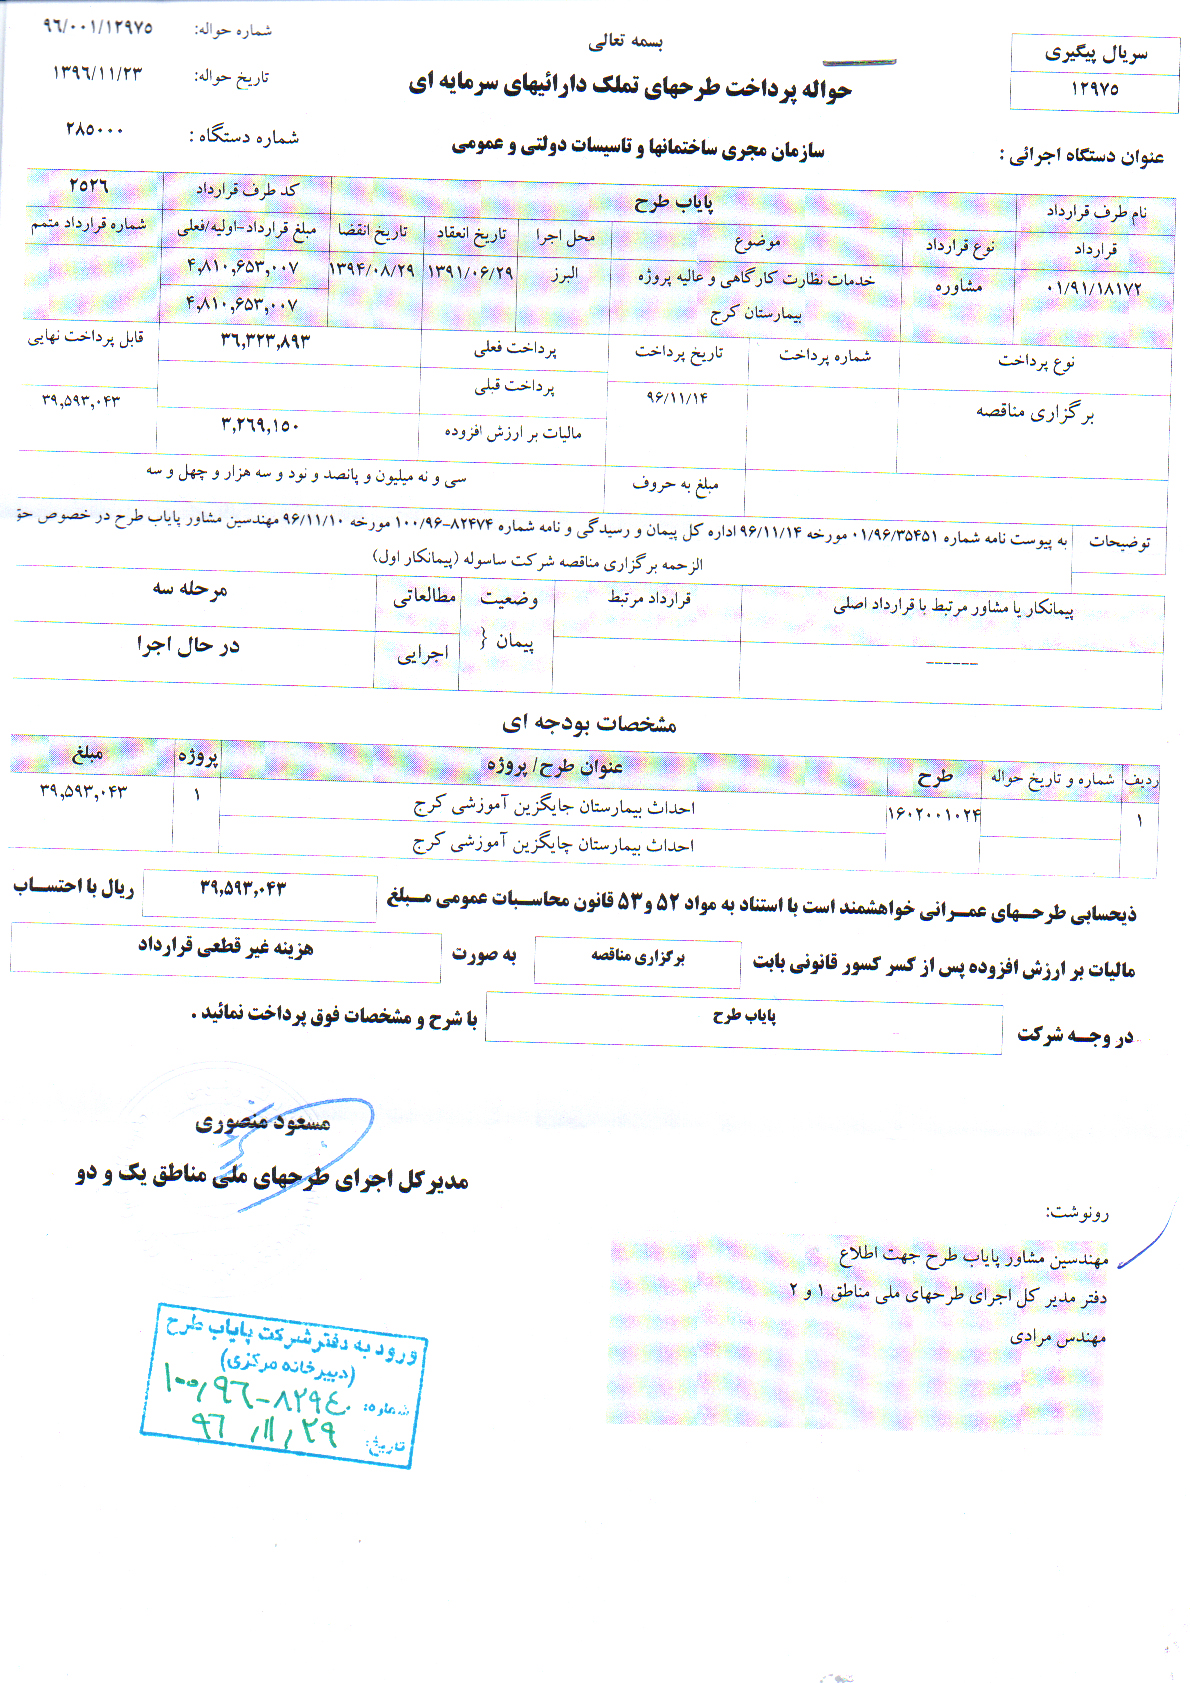 بسمه تعالی
شماره حواله: ۹۶/۰۰۱/۱۲۹۷۵
تاریخ حواله: ۱۳۹۶/۱۱/۲۳
سریال پیگیری
۱۲۹۷۵
حواله پرداخت طرحهای تملک دارائیهای سرمایه ای
عنوان دستگاه اجرائی : سازمان مجری ساختمانها و تاسیسات دولتی و عمومی
شماره دستگاه : ۲۸۵۰۰۰
نام طرف قرارداد پایاب طرح کد طرف قرارداد ۲۵۲۶
قرارداد نوع قرارداد موضوع محل اجرا تاریخ انعقاد تاریخ انقضا مبلغ قرارداد-اولیه/فعلی شماره قرارداد متمم
۰۱/۹۱/۱۸۱۷۲ مشاوره خدمات نظارت کارگاهی و عالیه پروژه البرز ۱۳۹۱/۰۶/۲۹ ۱۳۹۴/۰۸/۲۹ ۴,۸۱۰,۶۵۳,۰۰۷
بیمارستان کرج ۴,۸۱۰,۶۵۳,۰۰۷
نوع پرداخت شماره پرداخت تاریخ پرداخت پرداخت فعلی ۳۶,۳۲۳,۸۹۳ قابل پرداخت نهایی
پرداخت قبلی
برگزاری مناقصه ۹۶/۱۱/۱۴ مالیات بر ارزش افزوده ۳,۲۶۹,۱۵۰ ۳۹,۵۹۳,۰۴۳
مبلغ به حروف سی و نه میلیون و پانصد و نود و سه هزار و چهل و سه
توضیحات به پیوست نامه شماره ۰۱/۹۶/۳۵۴۵۱ مورخه ۹۶/۱۱/۱۴ اداره کل پیمان و رسیدگی و نامه شماره ۸۲۴۷۴-۱۰۰/۹۶ مورخه ۹۶/۱۱/۱۰ مهندسین مشاور پایاب طرح در خصوص حق
الزحمه برگزاری مناقصه شرکت ساسوله (پیمانکار اول)
پیمانکار یا مشاور مرتبط با قرارداد اصلی قرارداد مرتبط وضعیت پیمان { مطالعاتی مرحله سه
------ اجرایی در حال اجرا
مشخصات بودجه ای
ردیف شماره و تاریخ حواله طرح عنوان طرح/ پروژه پروژه مبلغ
۱ ۱۶۰۲۰۰۱۰۲۴ احداث بیمارستان جایگزین آموزشی کرج ۱ ۳۹,۵۹۳,۰۴۳
احداث بیمارستان جایگزین آموزشی کرج
ذیحسابی طرحهای عمرانی خواهشمند است با استناد به مواد ۵۲ و۵۳ قانون محاسبات عمومی مبلغ ۳۹,۵۹۳,۰۴۳ ریال با احتساب
مالیات بر ارزش افزوده پس از کسر کسور قانونی بابت برگزاری مناقصه به صورت هزینه غیر قطعی قرارداد
در وجه شرکت پایاب طرح با شرح و مشخصات فوق پرداخت نمائید .
مسعود منصوری
مدیرکل اجرای طرحهای ملی مناطق یک و دو
رونوشت:
مهندسین مشاور پایاب طرح جهت اطلاع
دفتر مدیر کل اجرای طرحهای ملی مناطق ۱ و ۲
مهندس مرادی
ورود به دفتر شرکت پایاب طرح
(دبیرخانه مرکزی)
شماره: ۱۰۰,۹۶-۸۲۹۴۰
تاریخ: ۹۶,۱۱,۲۹